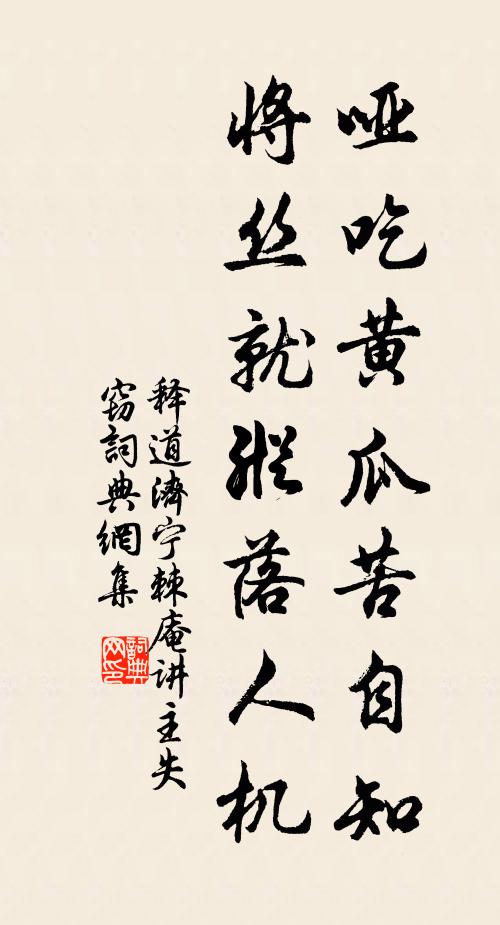 哑吃黄瓜苦自知
将丝就纵落人机
释道濟宁棘庵讲主失
窃詞典網集
詞典网印